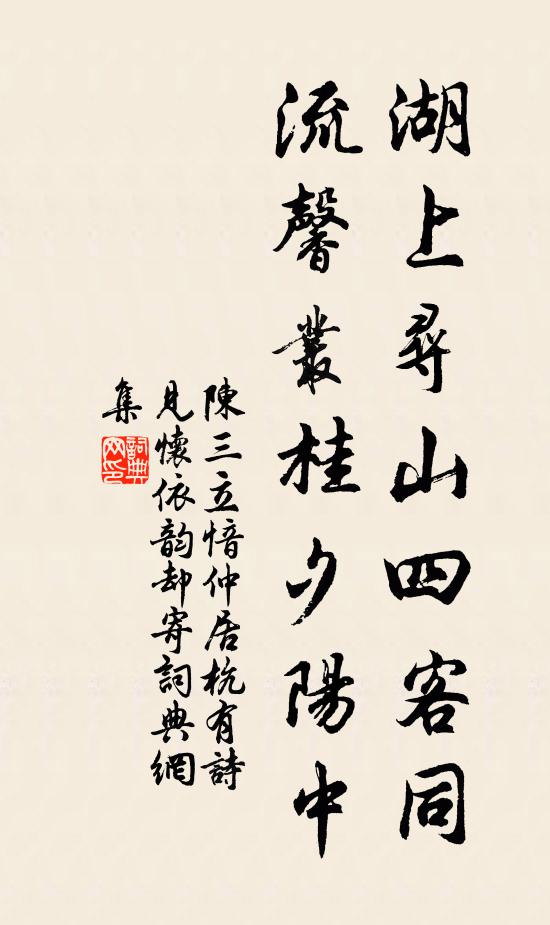 湖上尋山四客同
流馨叢桂夕陽中
陳三立愔仲居杭有詩
見懷依韵却寄詞典網
集
詞典網印